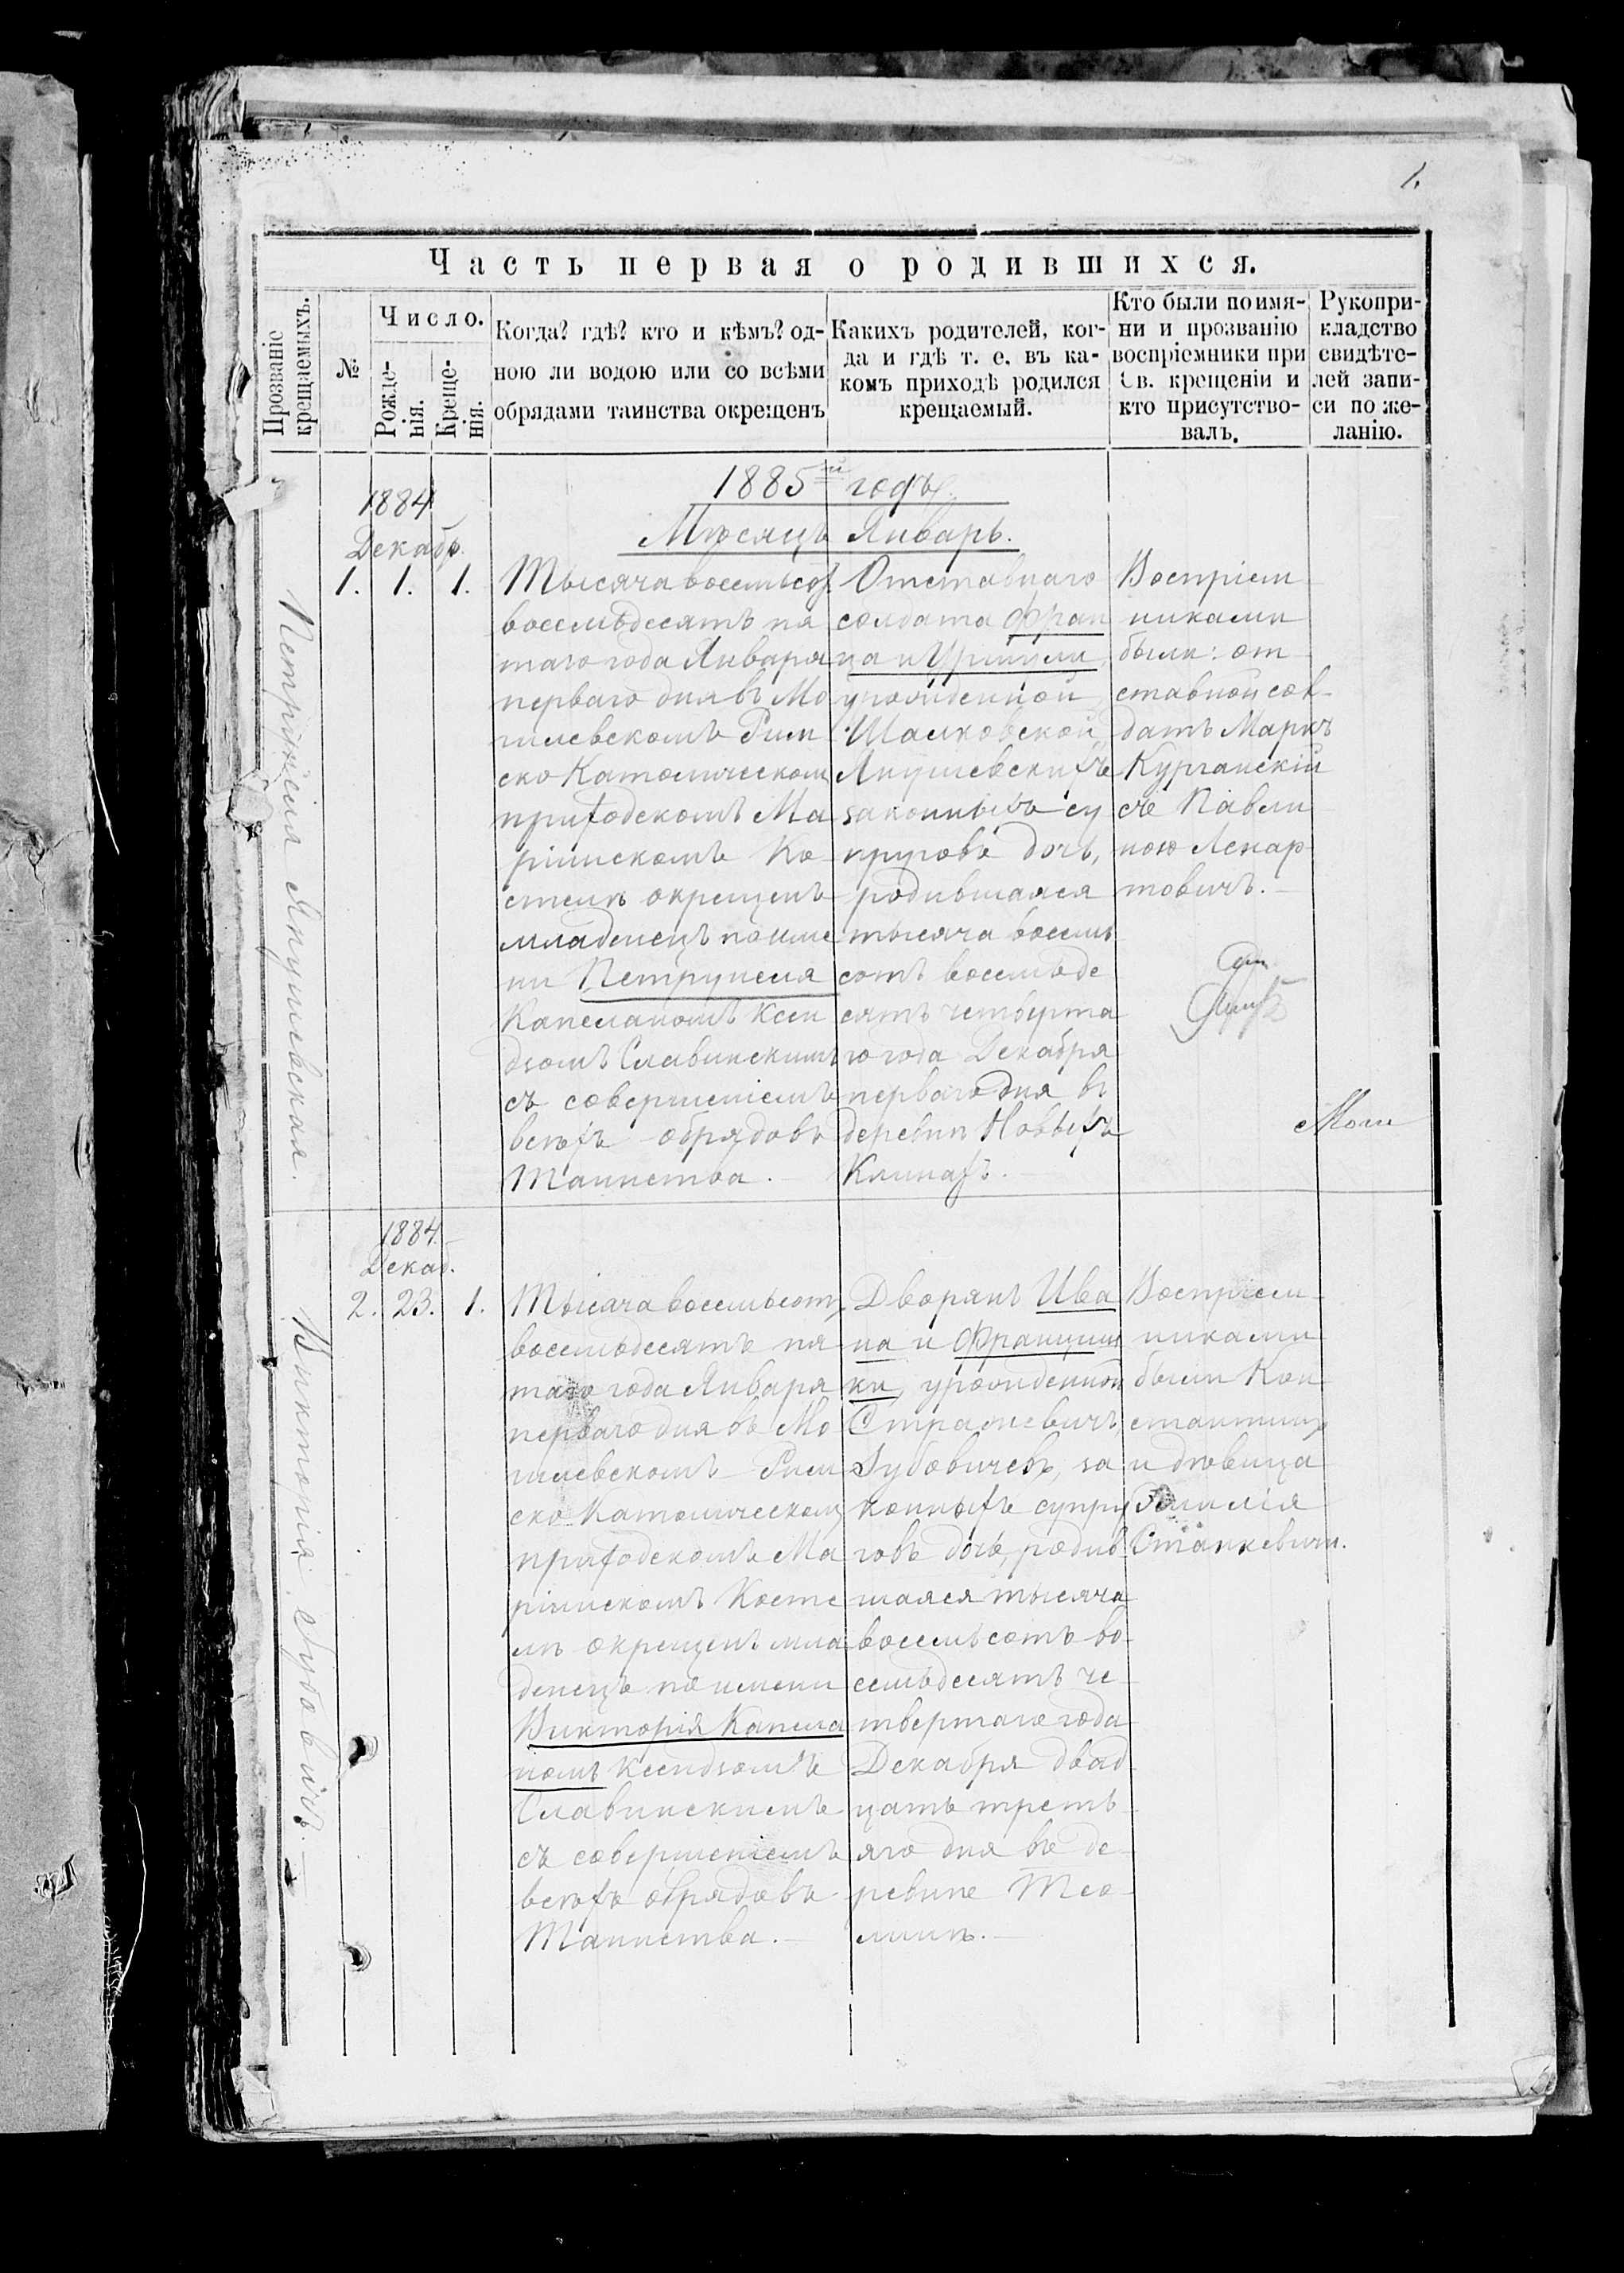 1.
Часть первая о родившихся.
Прозваніе крещаемыхъ.
№
Число.
Рожде-
нія.
Креще-
нія.
Когда? гдѣ? кто и кѣмъ? од-
ною ли водою или со всѣми
обрядами таинства окрещенъ
Какихъ родителей, ког-
да и гдѣ т. е. въ ка-
комъ приходѣ родился
крещаемый.
Кто были по имя-
ни и прозванію
воспріемники при
Св. крещеніи и
кто присутство-
валъ.
Рукопри-
кладство
свидѣте-
лей запи-
си по же-
ланію.
1885й годъ.
Мѣсяцъ Январь.
Петрунеля Янушевская.
1884
Декабр.
1. 1. 1.
Тысяча восемьсот
восемьдесятъ пя
таго года Января
перваго дня въ Мо
гилевскомъ Рим
ско Католическом
приходскомъ Ма
ріинскомъ Ко-
стелѣ окрещенъ
младенецъ по име
ни Петрунеля
Капеланомъ Ксен
дзомъ Славинскимъ
съ совершеніемъ
всѣхъ обрядовъ
Таинства.
Отставнаго
солдата Фран
ца и Уршули,
урожденной
Шалковской
Янушевскихъ
законныхъ су
пруговъ дочь,
родившаяся
тысяча восемь
сотъ восемьде
сятъ четверта
го года Декабря
перваго дня въ
деревни Новыхъ
Клинахъ.
Воспріем
никами
были: от
ставной сол-
датъ Маркъ
Курганскій
съ Павли
ною Лекар
товичъ.
Виктория Зубовичъ.
1884.
Декаб.
2. 23. 1.
Тысяча восемьсотъ
восемьдесятъ пя
таго года Января
перваго дня въ Мо
гилевскомъ Рим
ско Католическом
приходскомъ Ма
ріинскомъ Косте
лѣ окрещенъ мла
денецъ по имени
Викторія Капела
номъ Ксендзомъ
Славинскимъ
съ совершеніемъ
всѣхъ обрядовъ
Таинства.
Дворянъ Ива
на и Францишк
ки, урожденной
Стражевичъ,
Зубовичевъ, за
конныхъ супру
говъ дочь, родив
шаяся тысяча
восемьсотъ во-
семьдесятъ че-
твертаго года
Декабря двад
цать треть
яго дня въ де-
ревнѣ
Воспріем-
никами
были Кон
стантинъ
и дѣвица
Эмилія
Станкевичи.